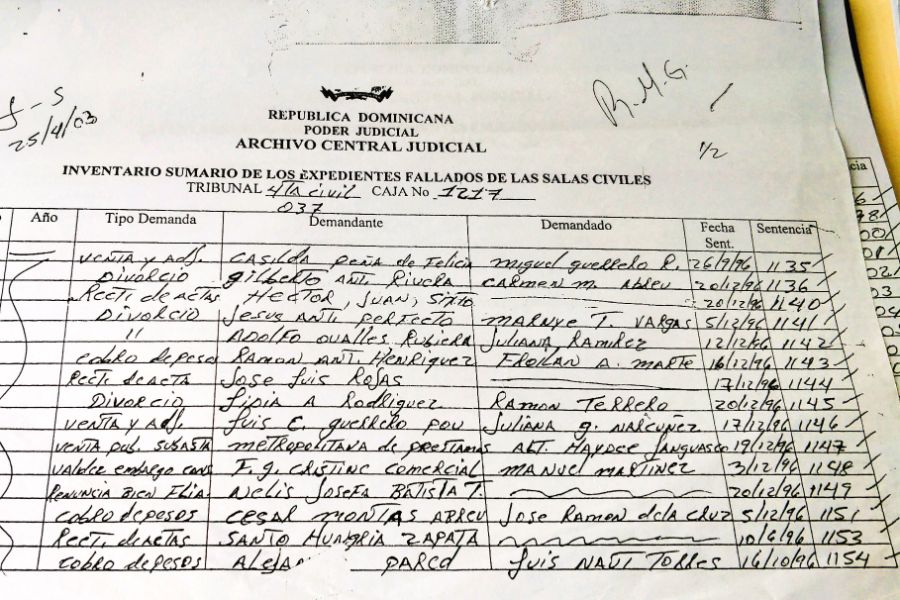 J-S
25/4/03
R.M.G.
1/2
REPUBLICA DOMINICANA
PODER JUDICIAL
ARCHIVO CENTRAL JUDICIAL
INVENTARIO SUMARIO DE LOS EXPEDIENTES FALLADOS DE LAS SALAS CIVILES
TRIBUNAL 4ta civil CAJA No 1217
037
Año Tipo Demanda Demandante Demandado Fecha Sent. Sentencia
venta y adj. CASILDA PEÑA de Felicia miguel guerrero R. 26/9/96 1135
Divorcio gilberto ANT. Rivera CARMEN M. ABREU 20/12/96 1136
Recti de actas HECTOR, JUAN, SIXTO 20/12/96 1140
DIVORCIO JESUS ANT. PERFECTO MARNYE T. VARGAS 5/12/96 1141
" ADOLFO OVALLES RUBIERA JULIANA RAMIREZ 12/12/96 1142
cobro de peso RAMON ANT. HENRIQUEZ FROILAN A. MARTE 16/12/96 1143
Recti de ACTA JOSE LUIS ROJAS 17/12/96 1144
DIVORCIO LIDIA A RODRIGUEZ RAMON TERRERO 20/12/96 1145
venta y Adj. LUIS E. guerrero POU JULIANA g. 17/12/96 1146
venta pub. SUBASTA METROPOLITANA de prestamos ALT. HAYDEE 19/12/96 1147
valdez embargo cons F.g. CRISTINE COMERCIAL MANUEL MARTINEZ 3/12/96 1148
RENUNCIA BIEN FLIA. NELIS JOSEFA BATISTA T. 20/12/96 1149
cobro de pesos CESAR MONTAS ABREU JOSE RAMON de la CRUZ 5/12/96 1151
Recti. de actas SANTO HUNGRIA ZAPATA 10/6/96 1153
cobro de pesos ALEJA PARED LUIS NATI TORRES 16/10/96 1154